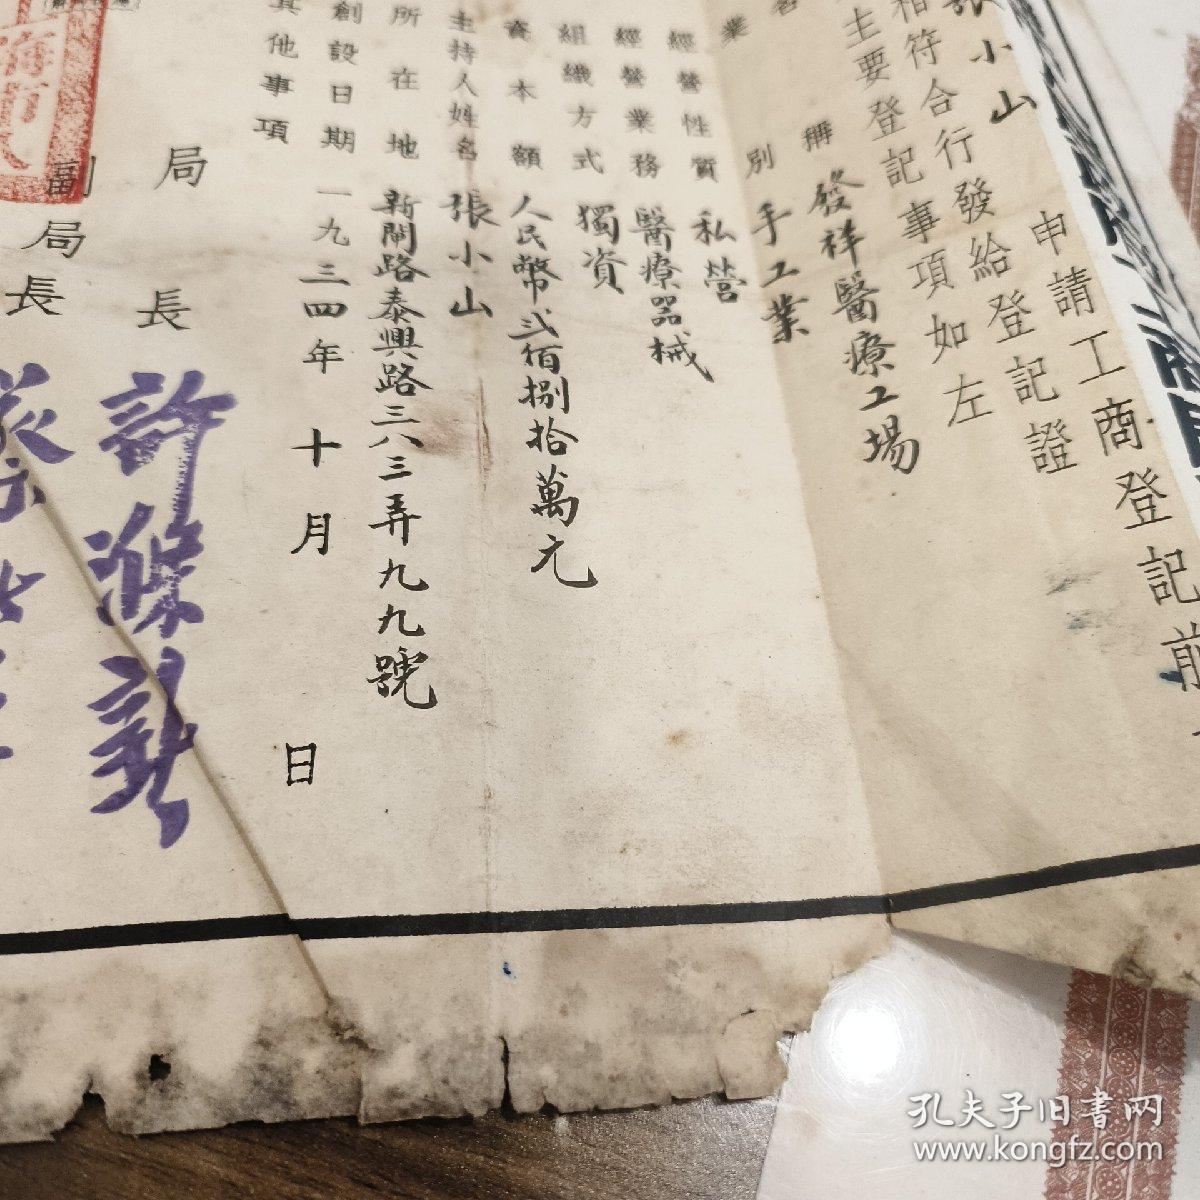 張小山 申請工商登記前
相符合行發給登記證
主要登記事項如左
名 稱 發祥醫療工場
業 別 手工業
經營性質 私營
經營業務 醫療器械
組織方式 獨資
資本額 人民幣弍佰捌拾萬元
主持人姓名 張小山
所在地 新閘路泰興路三八三弄九九號
創設日期 一九三四年 十月 日
其他事項
局長 許滌新
副局長
孔夫子旧書网
www.kongfz.com